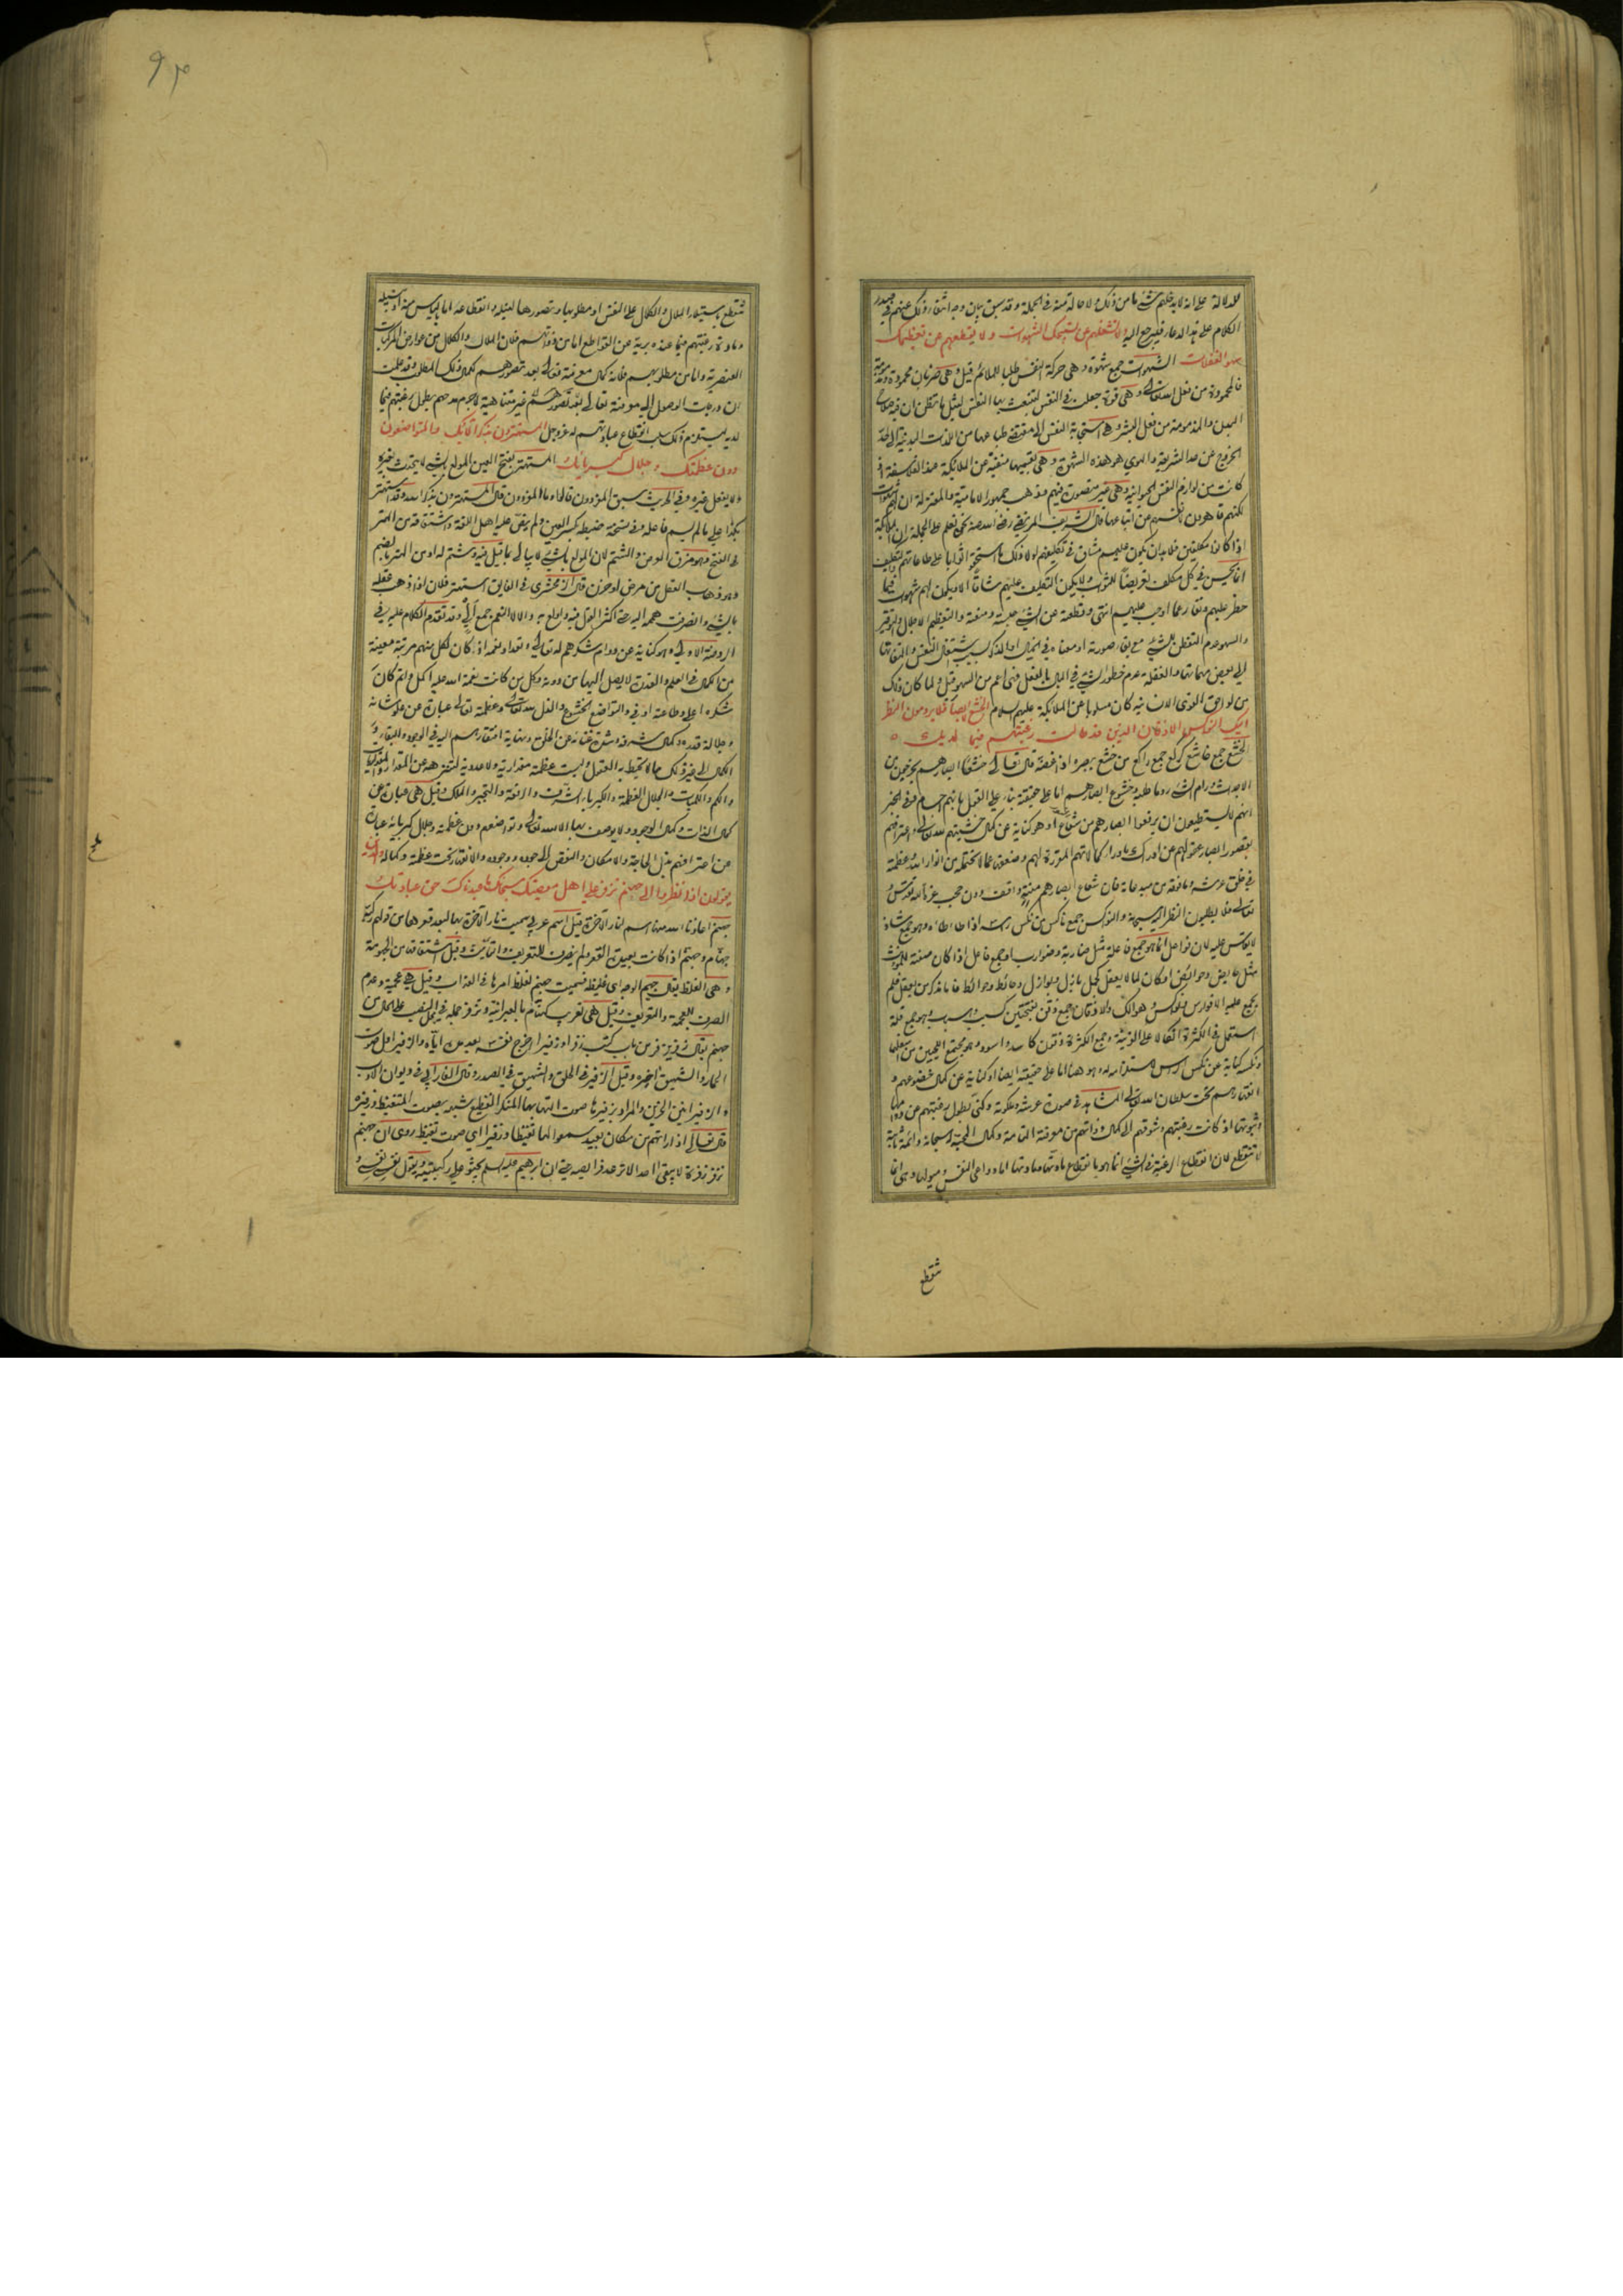 للدلالة على انه لا يدخلهم شئ ما من ذلك ولا حالة منه في الجملة وقد سبق بيان وجه انتفاء ذلك عنهم في صدر
الكلام على هذا الدعاء فليرجع اليه ولا تشغلهم عن تسبيحك الشهوات ولا يقطعهم عن تعظيمك
سهو الغفلات الشهوات جمع شهوة وهي حركة النفس طلبا للملائم قيل وهي ضربان محمودة ومذمومة
فالمحمودة من فعل الله تعالى وهي قوة جعلت في النفس لتنبعث بها النفس لنيل ما تظن ان فيه صلاح
البدن والمذمومة من فعل البشر وهي استجابة النفس الى مقتضى طباعها من اللذات البدنية الى حد
الخروج عن حد الشريعة والهوى هو هذه الشهوة وهي بقسميها منفية عن الملائكة عند الفلاسفة اذ
كانت من لوازم النفس الحيوانية وهي غير متصورة فيهم وذهب جمهور الامامية والمعتزلة ان لهم شهوات
لكنهم قاهرون لانفسهم عن اتباعها قال الشريف المرتضى رضي الله عنه نحن نعلم على الجملة ان الملائكة
اذا كانوا مكلفين فلا بد ان يكون عليهم مشاق في تكليفهم ولولا ذلك ما استحقوا ثوابا على طاعاتهم والتكليف
انما يحسن في كل مكلف تعريضا للثواب ولا يكون التكليف عليهم شاقا الا ويكون لهم شهوات فيما
حظر عليهم ونفار عما اوجب عليهم انتهى وقطعه عن الشئ حبسه ومنعه والتعظيم الاجلال والتوقير
والسهو عدم التفطن للشئ مع بقاء صورته او معناه في الخيال او الذكر بسبب اشتغال النفس والتفاتها
الى بعض مهماتها والغفلة عدم خطور الشئ في البال بالفعل فهي اعم من السهو قيل ولما كان ذلك
من لواحق القوى الانسانية كان مسلوبا عن الملائكة عليهم السلام الخشع الابصار فلا يرومون النظر
اليك النواكس الاذقان الذين قد طالت رغبتهم فيما لديك
الخشع جمع خاشع كركع جمع راكع من خشع ببصره اذا غضه قال تعالى خشعا ابصارهم يخرجون من
الاجداث ورام الشئ روما طلبه وخشوع ابصارهم اما على حقيقته بناء على القول بانهم اجسام وفي الخبر
انهم لا يستطيعون ان يرفعوا ابصارهم من شعاع او هو كناية عن كمال خشيتهم لله تعالى واعترافهم
بقصور ابصار عقولهم عن ادراك ما وراء كمالاتهم المقدرة لهم وضعفها عما لا تحتمله من انوار الله وعظمته
في خلق عرشه وما فوقه من مبدعاته فان شعاع ابصارهم منته واقف دون حجب عزته تقدس
وتعالى فلا يطلبون النظر اليه سبحانه والنواكس جمع ناكس من نكس راسه اذا طاطاه وهو جمع شاذ
لا يقاس عليه لان فواعل انما هو جمع فاعلة مثل ضاربة وضوارب او جمع فاعل اذا كان صفة للمؤنث
مثل حايض وحوائض او كان لما لا يعقل كجمل بازل وبوازل وحائط وحوائط فاما مذكر من يعقل فلم
يجمع عليه الا فوارس ونواكس وهوالك والاذقان جمع ذقن بفتحتين كسبب واسباب وهو جمع قلة
استعمل في الكثرة اتكالا على القرينة وجمع الكثرة ذقون كاسد واسود وهو مجتمع اللحيين من اسفلهما
ونكسه كناية عن نكس الراس لاستلزامه له وهو هنا اما على حقيقته ايضا او كناية عن كمال خضوعهم و
انقيادهم تحت سلطان الله تعالى المشاهد في صورة عرشه وملكوته وكنى بطول رغبتهم عن دوامها
وثبوتها اذ كانت رغبتهم وشوقهم الى كمال ذواتهم من معرفته التامة وكمال المحبة له سبحانه دائمة ثابتة
لا تنقطع لان انقطاع الرغبة في الشئ انما هو بانقطاع مادتها ومادتها اما دواعي النفس وميولها وهي انما
تنقطع
تنقطع باستيلاء الملال والكلال على النفس او مطلوبها وتصورها لنيله وانقطاعه اما لليأس منه او لنيله
ومادة رغبتهم فيما عنده برية عن القواطع اما من ذواتهم فلان الملال والكلال من عوارض المركبات
العنصرية واما من مطلوبهم فلانه كمال معرفته تعالى بعد تصورهم لكمال ذلك المطلوب وقد علمت
ان درجات الوصول الى معرفته تعالى بعد تصورهم غير متناهية لا جرم مدحهم بطول رغبتهم فيما
لديه ليستلزم ذلك سلب انقطاع عبادتهم له عز وجل المستهترون بذكر آلائك والمتواضعون
دون عظمتك وجلال كبريائك المستهتر بفتح العين المولع بالشئ لا يتحدث بغيره
ولا يفعل غيره وفي الحديث سبق المفردون قالوا وما المفردون قال المستهترون بذكر الله وقد استهتر
بكذا على ما لم يسم فاعله وفي نسخة ضبطه بكسر العين ولم يوافق عليه اهل اللغة واشتقاقه من الهتر
بالفتح وهو مزق العرض والشتم لان المولع بالشئ لا يبالي بما قيل فيه وشتم له او من الهتر بالضم
وهو ذهاب العقل من مرض او حزن قال الزمخشري في الفايق استهتر فلان اذا ذهب عقله
بالشئ وانصرفت همته اليه حتى اكثر القول فيه واولع به والآلاء النعم جمع الى وقد تقدم الكلام عليه في
الروضة الاولى وهو كناية عن دوام شكرهم له تعالى
من الكمال في العلم والقدرة لا يصل اليها من دونه وكل من كانت نعمة الله عليه اكمل واتم كان
شكره اعلى وطاعته اوفى والتواضع الخشوع والذل لله تعالى وعظمته تعالى عبارة عن علو شانه
وجلالة قدره وكمال شرفه وشدة غنائه عن الخلق ونهاية افتقارهم اليه في الوجود والبقاء و
الكمال الى غير ذلك مما لا تحيط به العقول وليست عظمته مقدارية ولا عددية لتنزهه عن المقدار والمقداريات
والكم والكميات والجلال العظمة والكبرياء الشرف والرفعة والتجبر والملك وقيل هي عبارة عن
كمال الذات وكمال الوجود ولا يوصف بها الا الله تعالى وتواضعهم دون عظمته وجلال كبريائه عبارة
عن اعترافهم بذل الحاجة والامكان والنقص الى جوده ووجوده والانقهار تحت عظمته وكماله والذين
يقولون اذا نظروا الى جهنم تزفر على اهل معصيتك سبحانك ما عبدناك حق عبادتك
جهنم اعاذنا الله منها اسم لنار الآخرة قيل اسم عربي وسميت نار الآخرة بها لبعد قعرها من قولهم ركية
جهنام وجهنم اذا كانت بعيدة القعر ولم يصرف للتعريف والتانيث وقيل اشتقاقها من الجهومة
وهي الغلظ يقال جهم الوجه اي غليظه فسميت جهنم لغلظ امرها في العذاب وقيل هي عجمية وعدم
الصرف للعجمة والتعريف وقيل هي تعريب كهنام بالعبرانية وتزفر جملة في محل النصب على الحال من
جهنم يقال زفر يزفر من باب ضرب زفرا وزفيرا اخرج نفسه بعد مده اياه والزفير اول صوت
الحمار والشهيق آخره وقيل الزفير في الحلق والشهيق في الصدر وقال الفارابي في ديوان الادب
والزفير انين الحزين والمراد بزفيرها صوت التهابها المنكر الفظيع شبه بصوت المتغيظ وزفيره
قال تعالى اذا راتهم من مكان بعيد سمعوا لها تغيظا وزفيرا اي صوت تغيظ روى ان جهنم
تزفر زفرة لا يبقى احد الا ترعد فرائصه حتى ان ابراهيم عليه السلام يجثو على ركبتيه ويقول نفسي نفسي